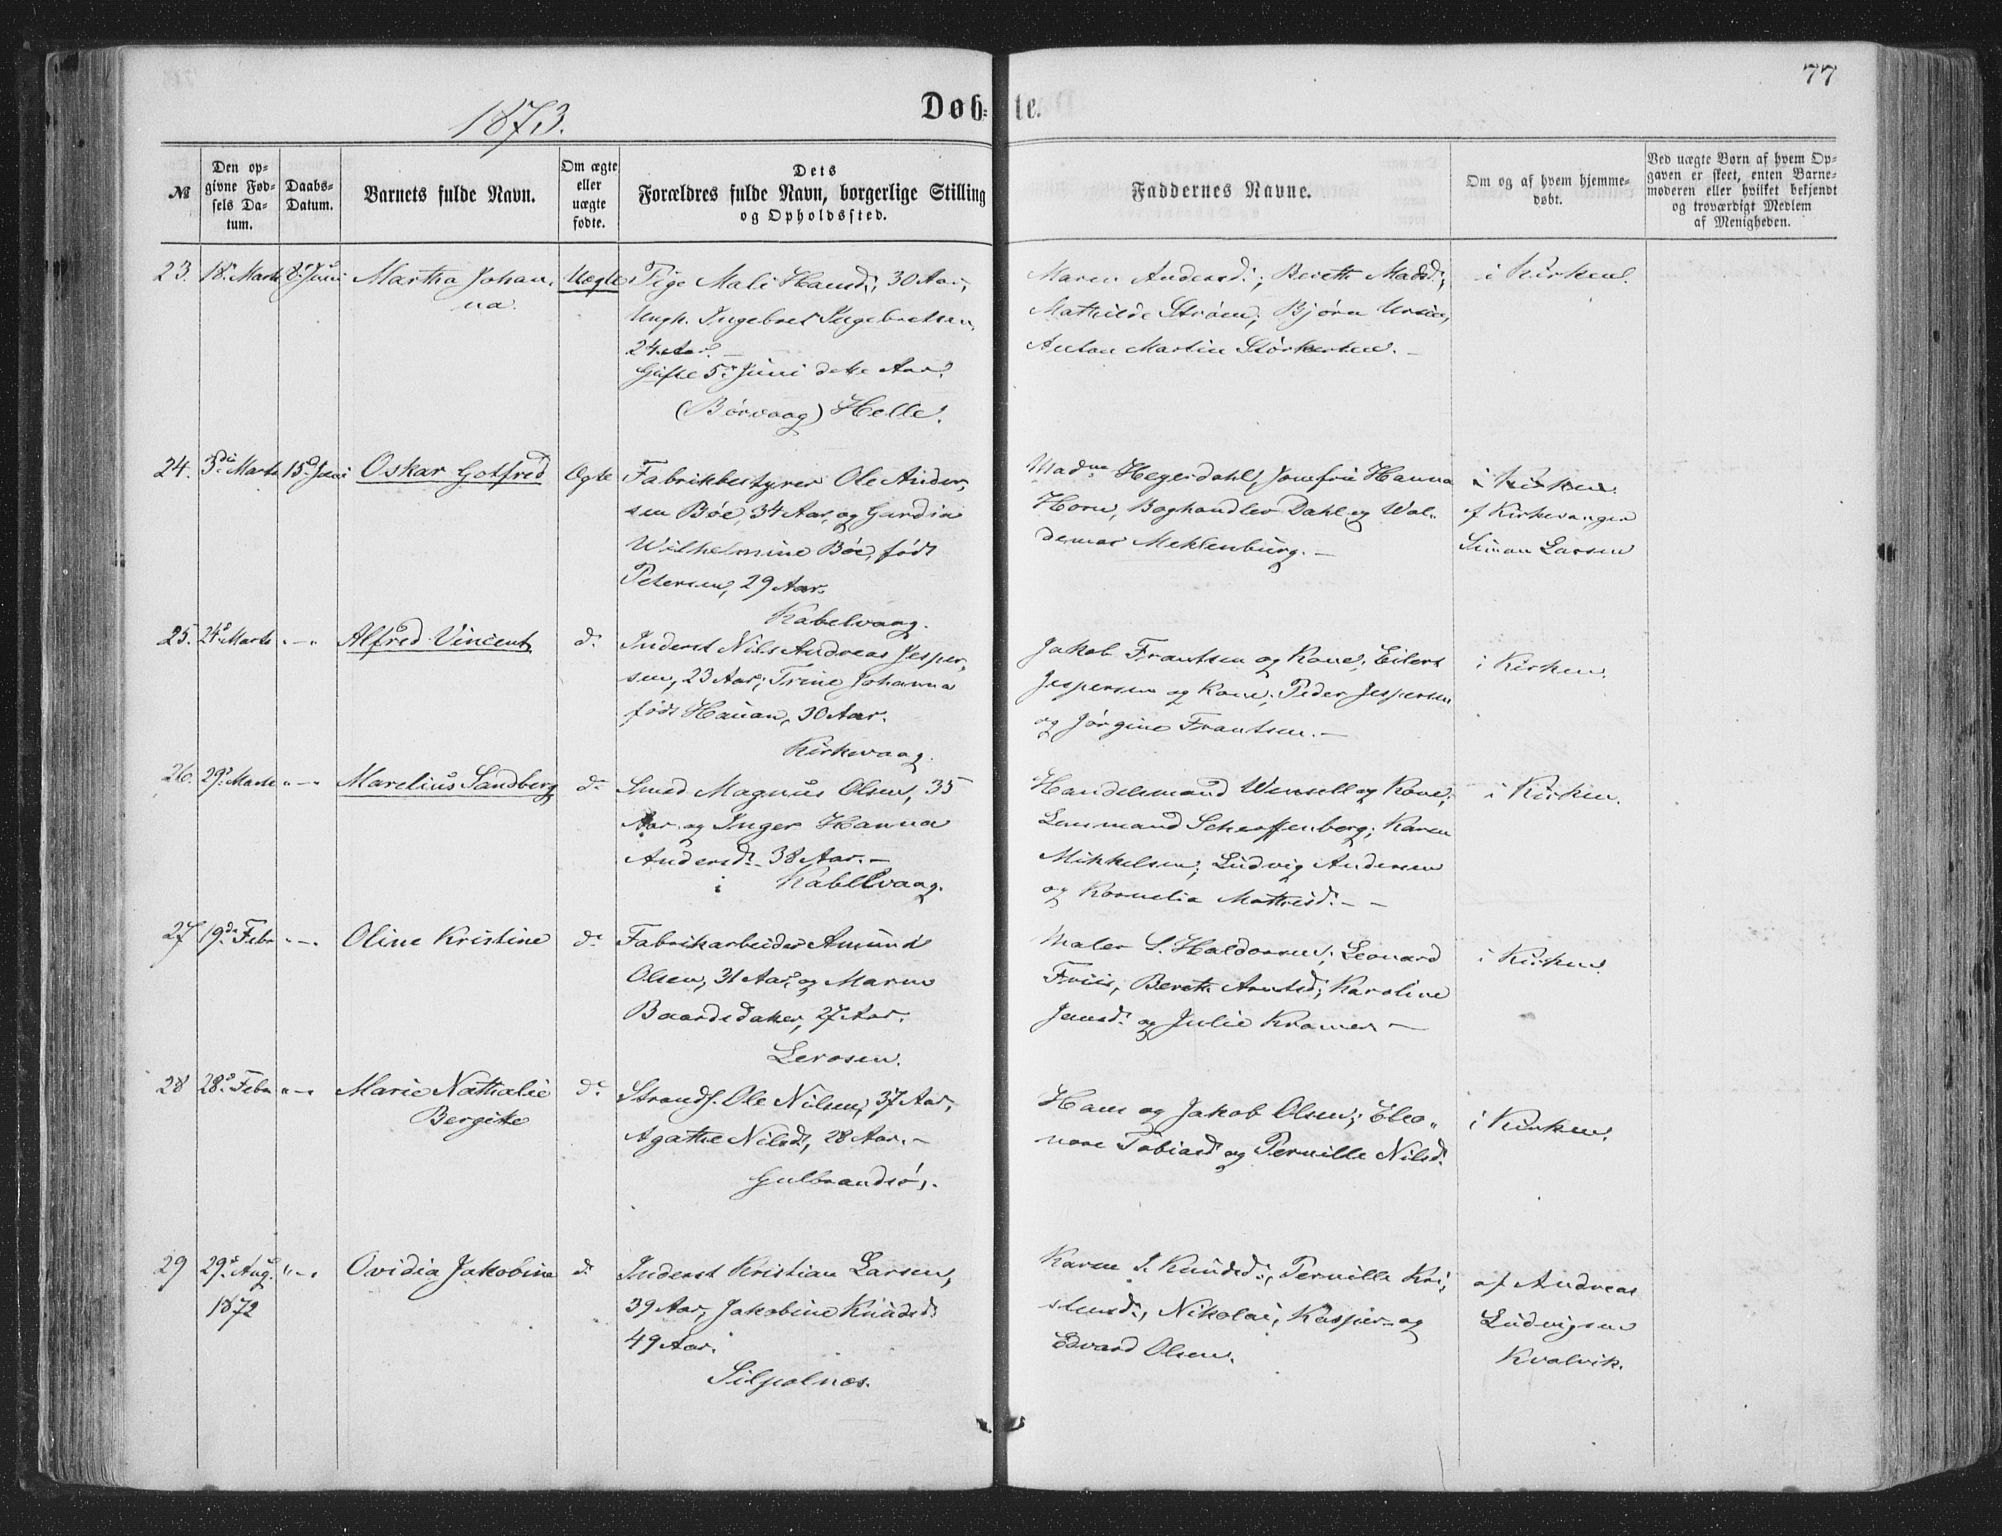 77
1873.
Døb-te.
№
Den op-
givne Fød-
sels Da-
tum.
Daabs-
Datum.
Barnets fulde Navn.
Om ægte
eller
uægte
fødte.
Dets
Forældres fulde Navn, borgerlige Stilling
og Opholdssted.
Faddernes Navne.
Om og af hvem hjemme-
døbt.
Ved uægte Børn af hvem Op-
gaven er skeet, enten Barne-
moderen eller hvilket bekjendt
og troværdigt Medlem
af Menigheden.
23. 18. Marts 8. Juni Martha Johan-
na.
Uægte
Pige Mali Hansd., 30 Aar,
Ungk. Ingebret Ingebretsen,
24 Aar. –
Gifte 5. Juni dette Aar.
(Børvaag) Helle.
Maren Andersd.; Bereth Madsd.;
Mathilde Strøm; Bjørn
Anton Martin Størkersen. –
i Kirken.
24. 3die Marts 15. Juni Oskar Gotfred
Ægte
Fabrikbestyrer Ole Ander-
sen Böe, 34 Aar, og Gurdia
Wilhelmine Böe, födt
Petersen, 29 Aar.
Kabelvaag.
Madme Hegerdahl, Jomfru Hanna
Horn, Boghandler Dahl og Wal-
demar Meklenburg. –
i Kirken.
af Kirkesanger
Simon Larsen
25. 24. Marts " – " Alfred Vincent
d.
Inderst Nils Andreas Jesper-
sen, 23 Aar; Trine Johanna
født Hauan, 30 Aar.
Kirkevaag.
Jakob Frantsen og Kone; Eilert
Jespersen og Kone; Peder Jespersen
og Jørgine Frantsen. –
i Kirken.
26. 29. Marts " – " Marelius Sandberg
d.
Smed Magnus Olsen, 35
Aar og Inger Hanna
Andersd. 38 Aar. –
i Kabelvaag.
Handelsmand Wensell og Kone;
Lensmand Scharffenberg; Karen
Mikkelsen; Ludvig Andersen
og Kornelia Mathisd. – –
i Kirken.
27 19de Febr " – " Oline Kristine
d.
Fabrikarbeider Amund
Olsen, 31 Aar, og Maren
Baardsdatter, 27 Aar.
Lerosen.
Maler S. Haldorsen; Leonard
Friis; Bereth Arntsd; Karoline
Jensd. og Julie Kramer –
i Kirken.
28 28. Febr " – " Marie Nathalie
Bergitte
d.
Strands. Ole Nilsen, 37 Aar,
Agathe Nilsd, 28 Aar. –
Gulbrandsø,.
Hans og Jakob Olsen; Eleo-
nore Tobiasd og Pernille Nilsd.
i Kirken.
29 29. Aug. " – " Ovidia Jakobine
1872
d.
Inderst Kristian Larsen,
39 Aar, Jakobine Knudsd.
49 Aar.
Silpolnæs.
Karen S. Knudsd., Pernille Kri-
stensd., Nikolai, Kasper og
Edvard Olsen.
af Andreas
Ludvigsen
Kvalvik.